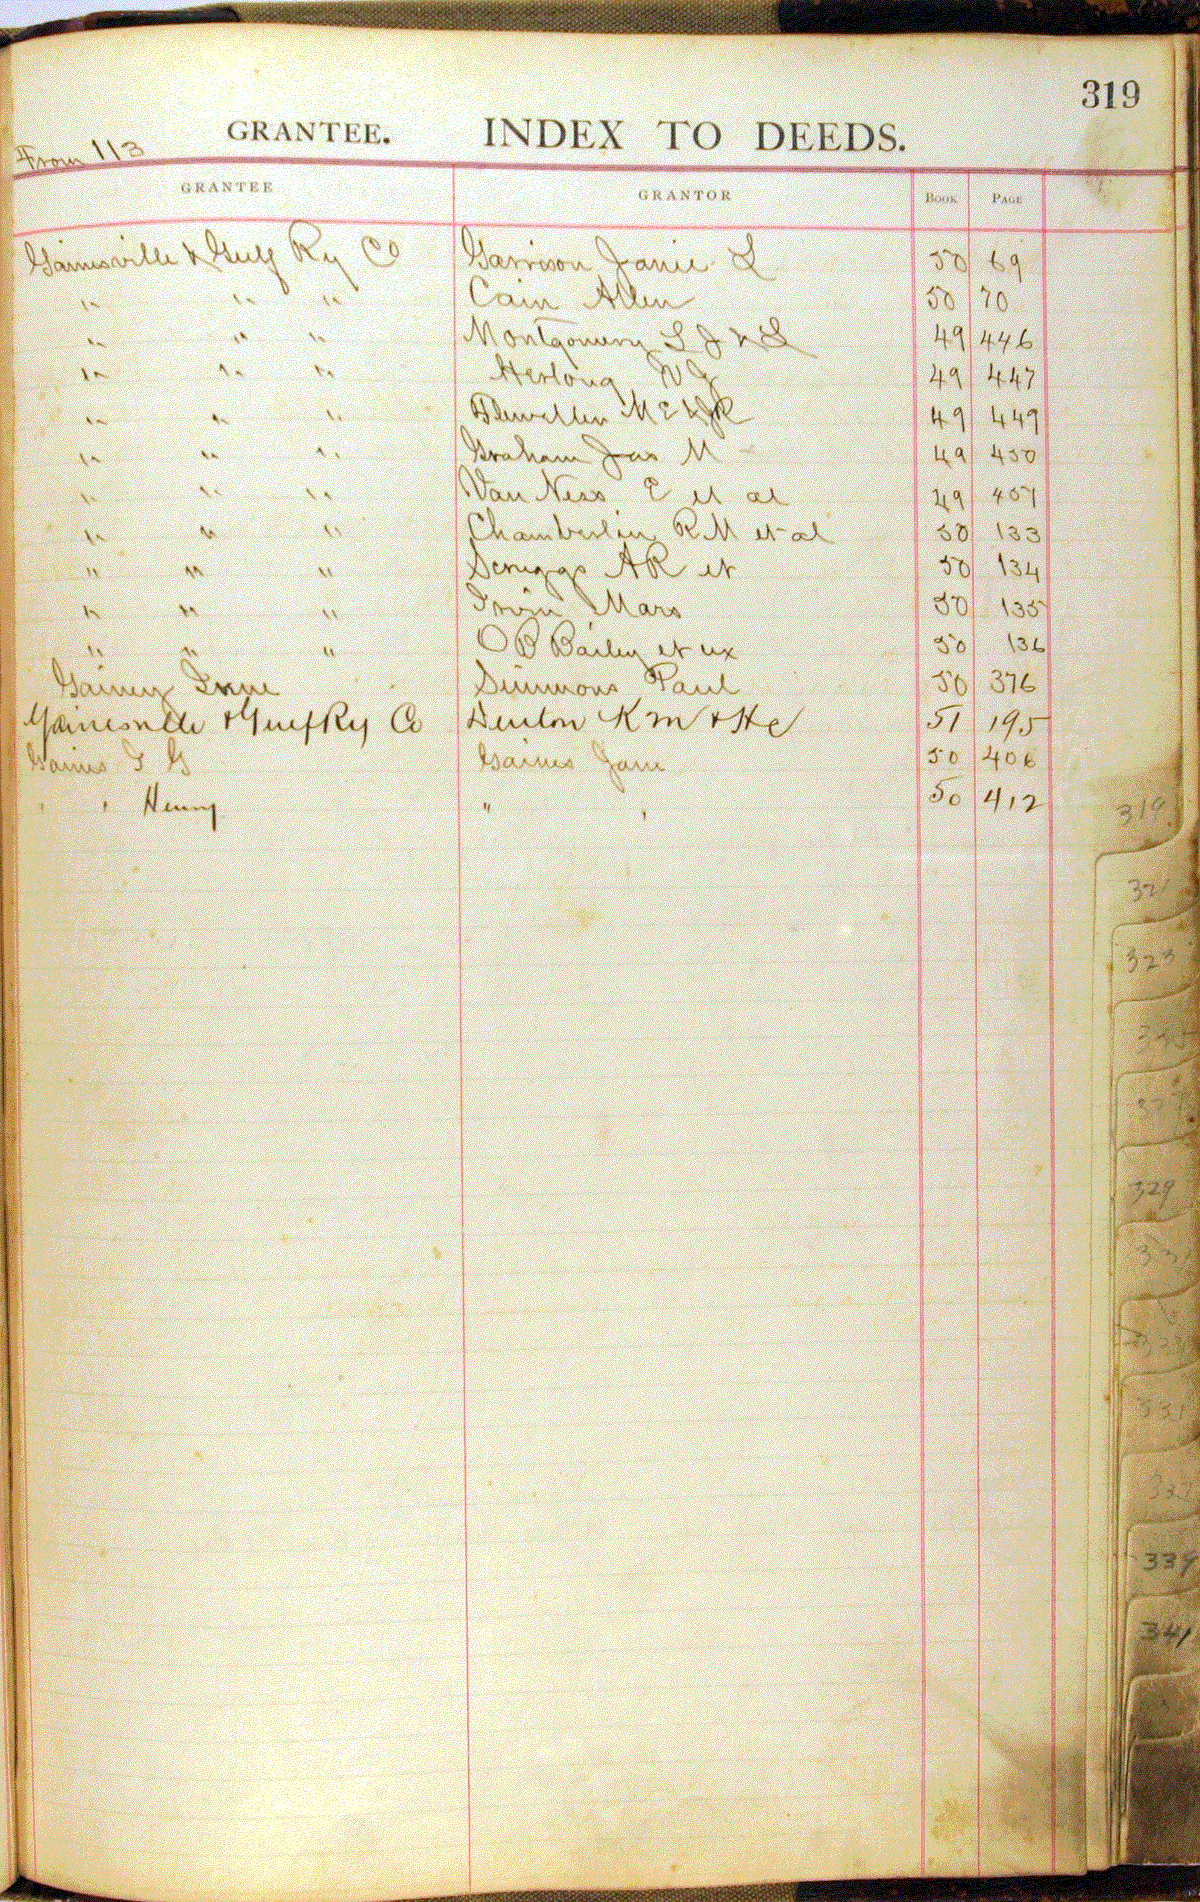 319
From 113 GRANTEE. INDEX TO DEEDS.
GRANTEE GRANTOR BOOK PAGE
Gainesville & Gulf Ry Co Garrison Janie L 50 69
" " " Cain Allen 50 70
" " " Montgomery L J & L 49 446
" " " Herlong W G 49 447
" " " M E & J R 49 449
" " " Graham Jas M 49 450
" " " Van Ness E et al 49 457
" " " Chamberlin R M et al 50 133
" " " Scruggs A R et 50 134
" " " Irvin Mars 50 135
" " " O B Bailey et ux 50 136
Gainey Simmons Paul 50 376
Gainesville & Gulf Ry Co Denton K M & H C 51 195
Gaines G Gaines Jane 50 406
" " Henry " " 50 412
319
321
323
329
339
341